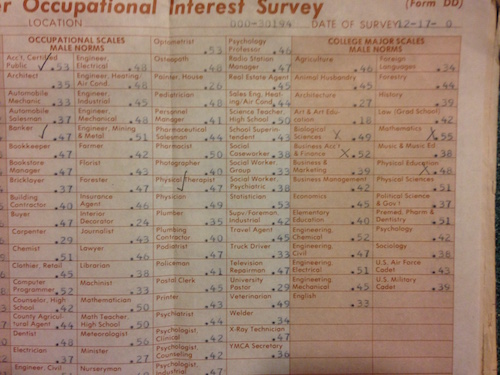 r Occupational Interest Survey
(Form DD)
LOCATION
000-30194
DATE OF SURVEY 12-17- 0
OCCUPATIONAL SCALES
MALE NORMS
Acc't, Certified
Public .53
Architect
.35
Automobile
Mechanic .33
Automobile
Salesman .37
Banker
.47
Bookkeeper
.47
Bookstore
Manager .47
Bricklayer
.37
Building
Contractor .40
Buyer
.47
Carpenter
.29
Chemist
.51
Clothier, Retail
.45
Computer
Programmer .52
Counselor, High
School .42
County Agricul-
tural Agent .44
Dentist
.48
Electrician
.37
Engineer, Civil
Engineer,
Electrical .48
Engineer, Heating/
Air Cond. .48
Engineer,
Industrial .45
Engineer, Mining
& Metal .51
Farmer
.42
Florist
.43
Forester
.47
Insurance
Agent .46
Interior
Decorator .24
Journalist
.43
Lawyer
.46
Librarian
.38
Machinist
.33
Mathematician
.50
Math Teacher,
High School .50
Meteorologist
Minister
.27
Nurseryman
Optometrist
.53
Osteopath
.48
Painter, House
.26
Pediatrician
Personnel
Manager .41
Pharmaceutical
Salesman .44
Pharmacist
.50
Photographer
.40
Physical Therapist
.47
Physician
.49
Plumber
.35
Plumbing
Contractor .40
Podiatrist
.47
Policeman
.41
Postal Clerk
Printer
.43
Psychiatrist
.44
Psychologist,
Clinical .42
Psychologist,
Counseling .42
Psychologist,
Industrial .47
Psychology
Professor .46
Radio Station
Manager .47
Real Estate Agent
.45
Sales Eng, Heat-
ing/Air Cond .44
Science Teacher,
High School .50
School Superin-
tendent .43
Social
Caseworker .38
Social Worker,
Group .33
Social Worker,
Psychiatric .38
Statistician
.53
Supv/Foreman,
Industrial .42
Travel Agent
.45
Truck Driver
.33
Television
Repairman .47
University
Pastor .29
Veterinarian
.49
Welder
.34
X-Ray Technician
.47
YMCA Secretary
.36
COLLEGE MAJOR SCALES
MALE NORMS
Agriculture
.46
Animal Husbandry
.45
Architecture
.27
Art & Art Edu-
cation .18
Biological
Sciences X .49
Business Acc't
& Finance X .52
Business &
Marketing .39
Business Management
.42
Economics
.45
Elementary
Education .40
Engineering,
Chemical .52
Engineering,
Civil .47
Engineering,
Electrical .51
Engineering,
Mechanical .45
English
.33
Foreign
Languages .34
Forestry
.44
History
.39
Law (Grad School)
.42
Mathematics
X .55
Music & Music Ed
.38
Physical Education
X .48
Physical Sciences
.51
Political Science
& Gov't .37
Premed, Pharm &
Dentistry .51
Psychology
.42
Sociology
.38
U.S. Air Force
Cadet .43
U.S. Military
Cadet .39